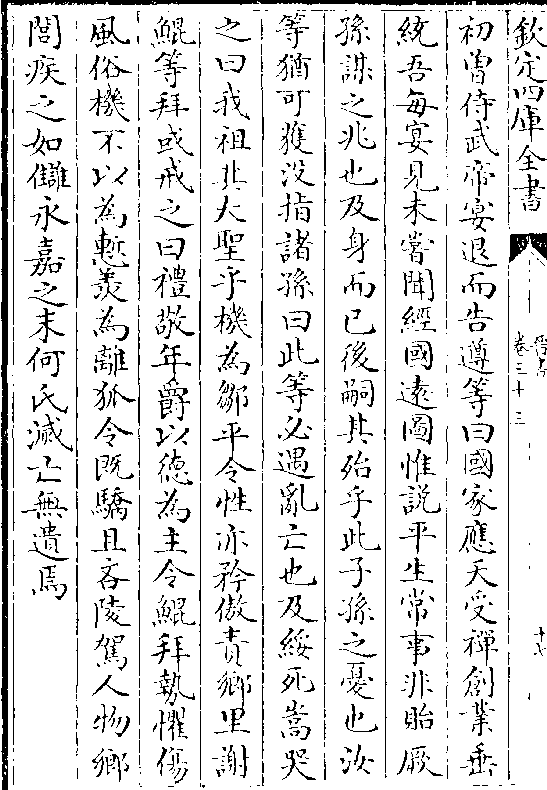 欽定四庫全書
晉書
卷三十三
十七
初曾侍武帝宴退而告遵等曰國家應天受禪創業垂
統吾每宴見未嘗聞經國遠圖惟說平生常事非貽厥
孫謀之兆也及身而已後嗣其殆乎此子孫之憂也汝
等猶可獲没指諸孫曰此等必遇亂亡也及綏死嵩哭
之曰我祖其大聖乎機為鄒平令性亦矜傲責鄉里謝
鯤等拜或戒之曰禮敬年爵以德為主令鯤拜執懼傷
風俗機不以為慙羨為離狐令既驕且吝陵駕人物鄉
閭疾之如讎永嘉之末何氏滅亡無遺焉